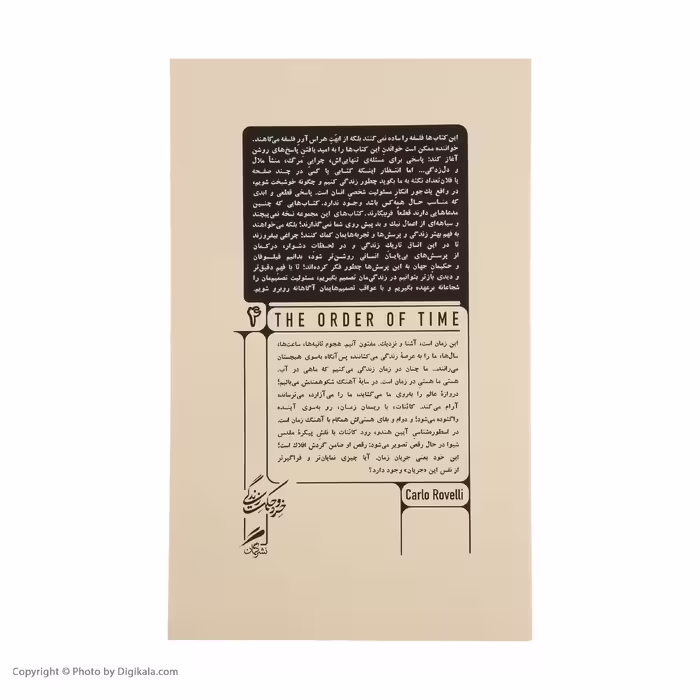 این کتاب‌ها فلسفه را ساده نمی‌کنند بلکه از ابهّتِ هراس‌آورِ فلسفه می‌کاهند.
خواننده ممکن است خواندنِ این کتاب‌ها را به امید یافتنِ پاسخ‌های روشن
آغاز کند: پاسخی برای مسئله‌ی تنهایی‌اش، چراییِ مرگ، منشأ ملال
و دل‌زدگی... اما انتظار اینکه کتابی یا کسی در چند صفحه
یا فلان‌تعداد نکته به ما بگوید چطور زندگی کنیم و چگونه خوشبخت شویم،
در واقع یک‌جور انکارِ مسئولیت شخصی انسان است. پاسخی قطعی و ابدی
که مناسب حال همه‌کس باشد وجود ندارد. کتاب‌هایی که چنین
مدعاهایی دارند قطعاً فریبکارند. کتاب‌های این مجموعه نسخه نمی‌پیچند
و سیاهه‌ای از اعمال نیک و بد پیش روی شما نمی‌گذارند؛ بلکه می‌خواهند
به فهم بهتر زندگی و پرسش‌ها و تجربه‌هایمان کمک کنند؛ چراغی بیفروزند
تا در این اتاق تاریک زندگی و در لحظاتِ دشوار، درکمان
از پرسش‌های بی‌پایان انسانی روشن‌تر شود، بدانیم فیلسوفان
و حکیمان جهان به این پرسش‌ها چطور فکر کرده‌اند؛ تا با فهم دقیق‌تر
و دیدی بازتر بتوانیم در زندگی‌مان تصمیم بگیریم، مسئولیت تصمیم‌مان را
شجاعانه برعهده بگیریم و با عواقب تصمیم‌هایمان آگاهانه روبرو شویم.
۴
THE ORDER OF TIME
این زمان است، آشنا و نزدیک. مفتون آنیم. هجوم ثانیه‌ها، ساعت‌ها،
سال‌ها، ما را به عرصهٔ زندگی می‌کشاند پس‌آنگاه به‌سوی هیچستان
می‌راند... ما چنان در زمان زندگی می‌کنیم که ماهی در آب.
هستی ما هستی در زمان است. در سایهٔ آهنگ شکوهمندش می‌بالیم؛
دروازهٔ عالم را به‌روی ما می‌گشاید، ما را می‌آزارد، می‌ترساند،
آرام می‌کند. کائنات، با ریسمان زمان، رو به‌سوی آینده
واگشوده می‌شود؛ و دوام و بقای هستی‌اش همگام با آهنگ زمان است.
در اسطوره‌شناسی آیین هندو، رود کائنات با نقش پیکرهٔ مقدس
شیوا در حال رقص تصویر می‌شود: رقص او ضامن گردش افلاک است؛
این خود یعنی جریان زمان. آیا چیزی نمایان‌تر و فراگیرتر
از نفس این «جریان» وجود دارد؟
Carlo Rovelli
خرد و حکمت زندگی
نشر گمان
Copyright © Photo by Digikala.com